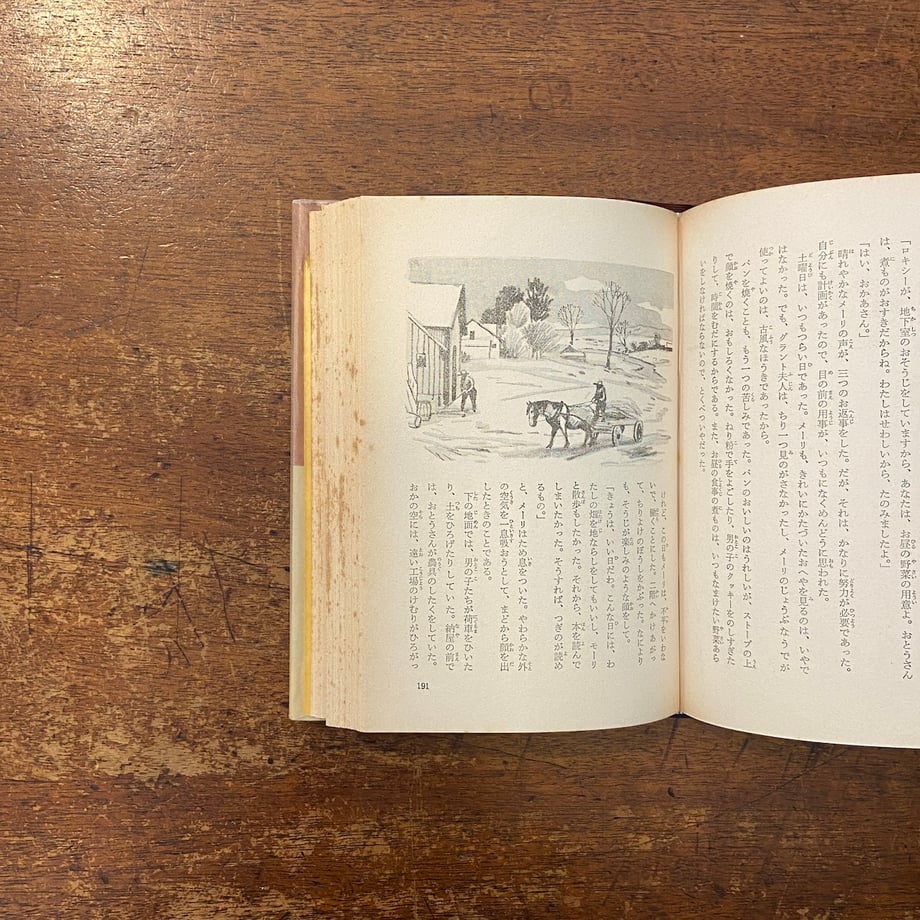 「ロキシーが、地下室のおそうじをしていますから、あなたは、お昼の野菜の用意よ。おとうさん
は、煮ものがおすきだからね。わたしはせわしいから、たのみましたよ。」
「はい、おかあさん。」
晴れやかなメーリの声が、三つのお返事をした。だが、それは、かなりに努力が必要であった。
自分にも計画があったので、目の前の用事が、いつもになくめんどうに思われた。
土曜日は、いつもつらい日であった。メーリも、きれいにかたづいたおへやを見るのは、いやで
はなかった。でも、グラント夫人は、ちり一つ見のがさなかったし、メーリのじょうぶなうでが
使ってよいのは、古風なほうきであったから。
パンを焼くことも、もう一つの苦しみであった。パンのおいしいのはうれしいが、ストーブの上
で顔を焼くのは、おもしろくなかった。ねり粉で手をよごしたり、男の子のクッキーをのしすぎた
りして、時間をむだにするからである。また、お昼の食事の煮ものは、いつもなまけたい野菜あら
いをしなければならないので、とくべついやだった。
けれど、この日もメーリは、不平をいわな
いで、働くことにした。二階へかけあがっ
て、ちりよけのぼうしをかぶった。なにより
も、そうじが楽しみのような顔をして。
「きょうは、いい日だわ。こんな日には、わ
たしの畑を地ならしをしてもいいし、モーリ
と散歩もしたかった。それから、本を読んで
しまいたかった。そうすれば、つぎのが読め
るもの。」
と、メーリはため息をついた。やわらかな外
の空気を一息吸おうとして、まどから顔を出
したときのことである。
下の地面では、男の子たちが荷車をひいた
り、土をひろげたりしていた。納屋の前で
は、おとうさんが農具のしたくをしていた。
おかの空には、遠い工場のけむりがひろがっ
191